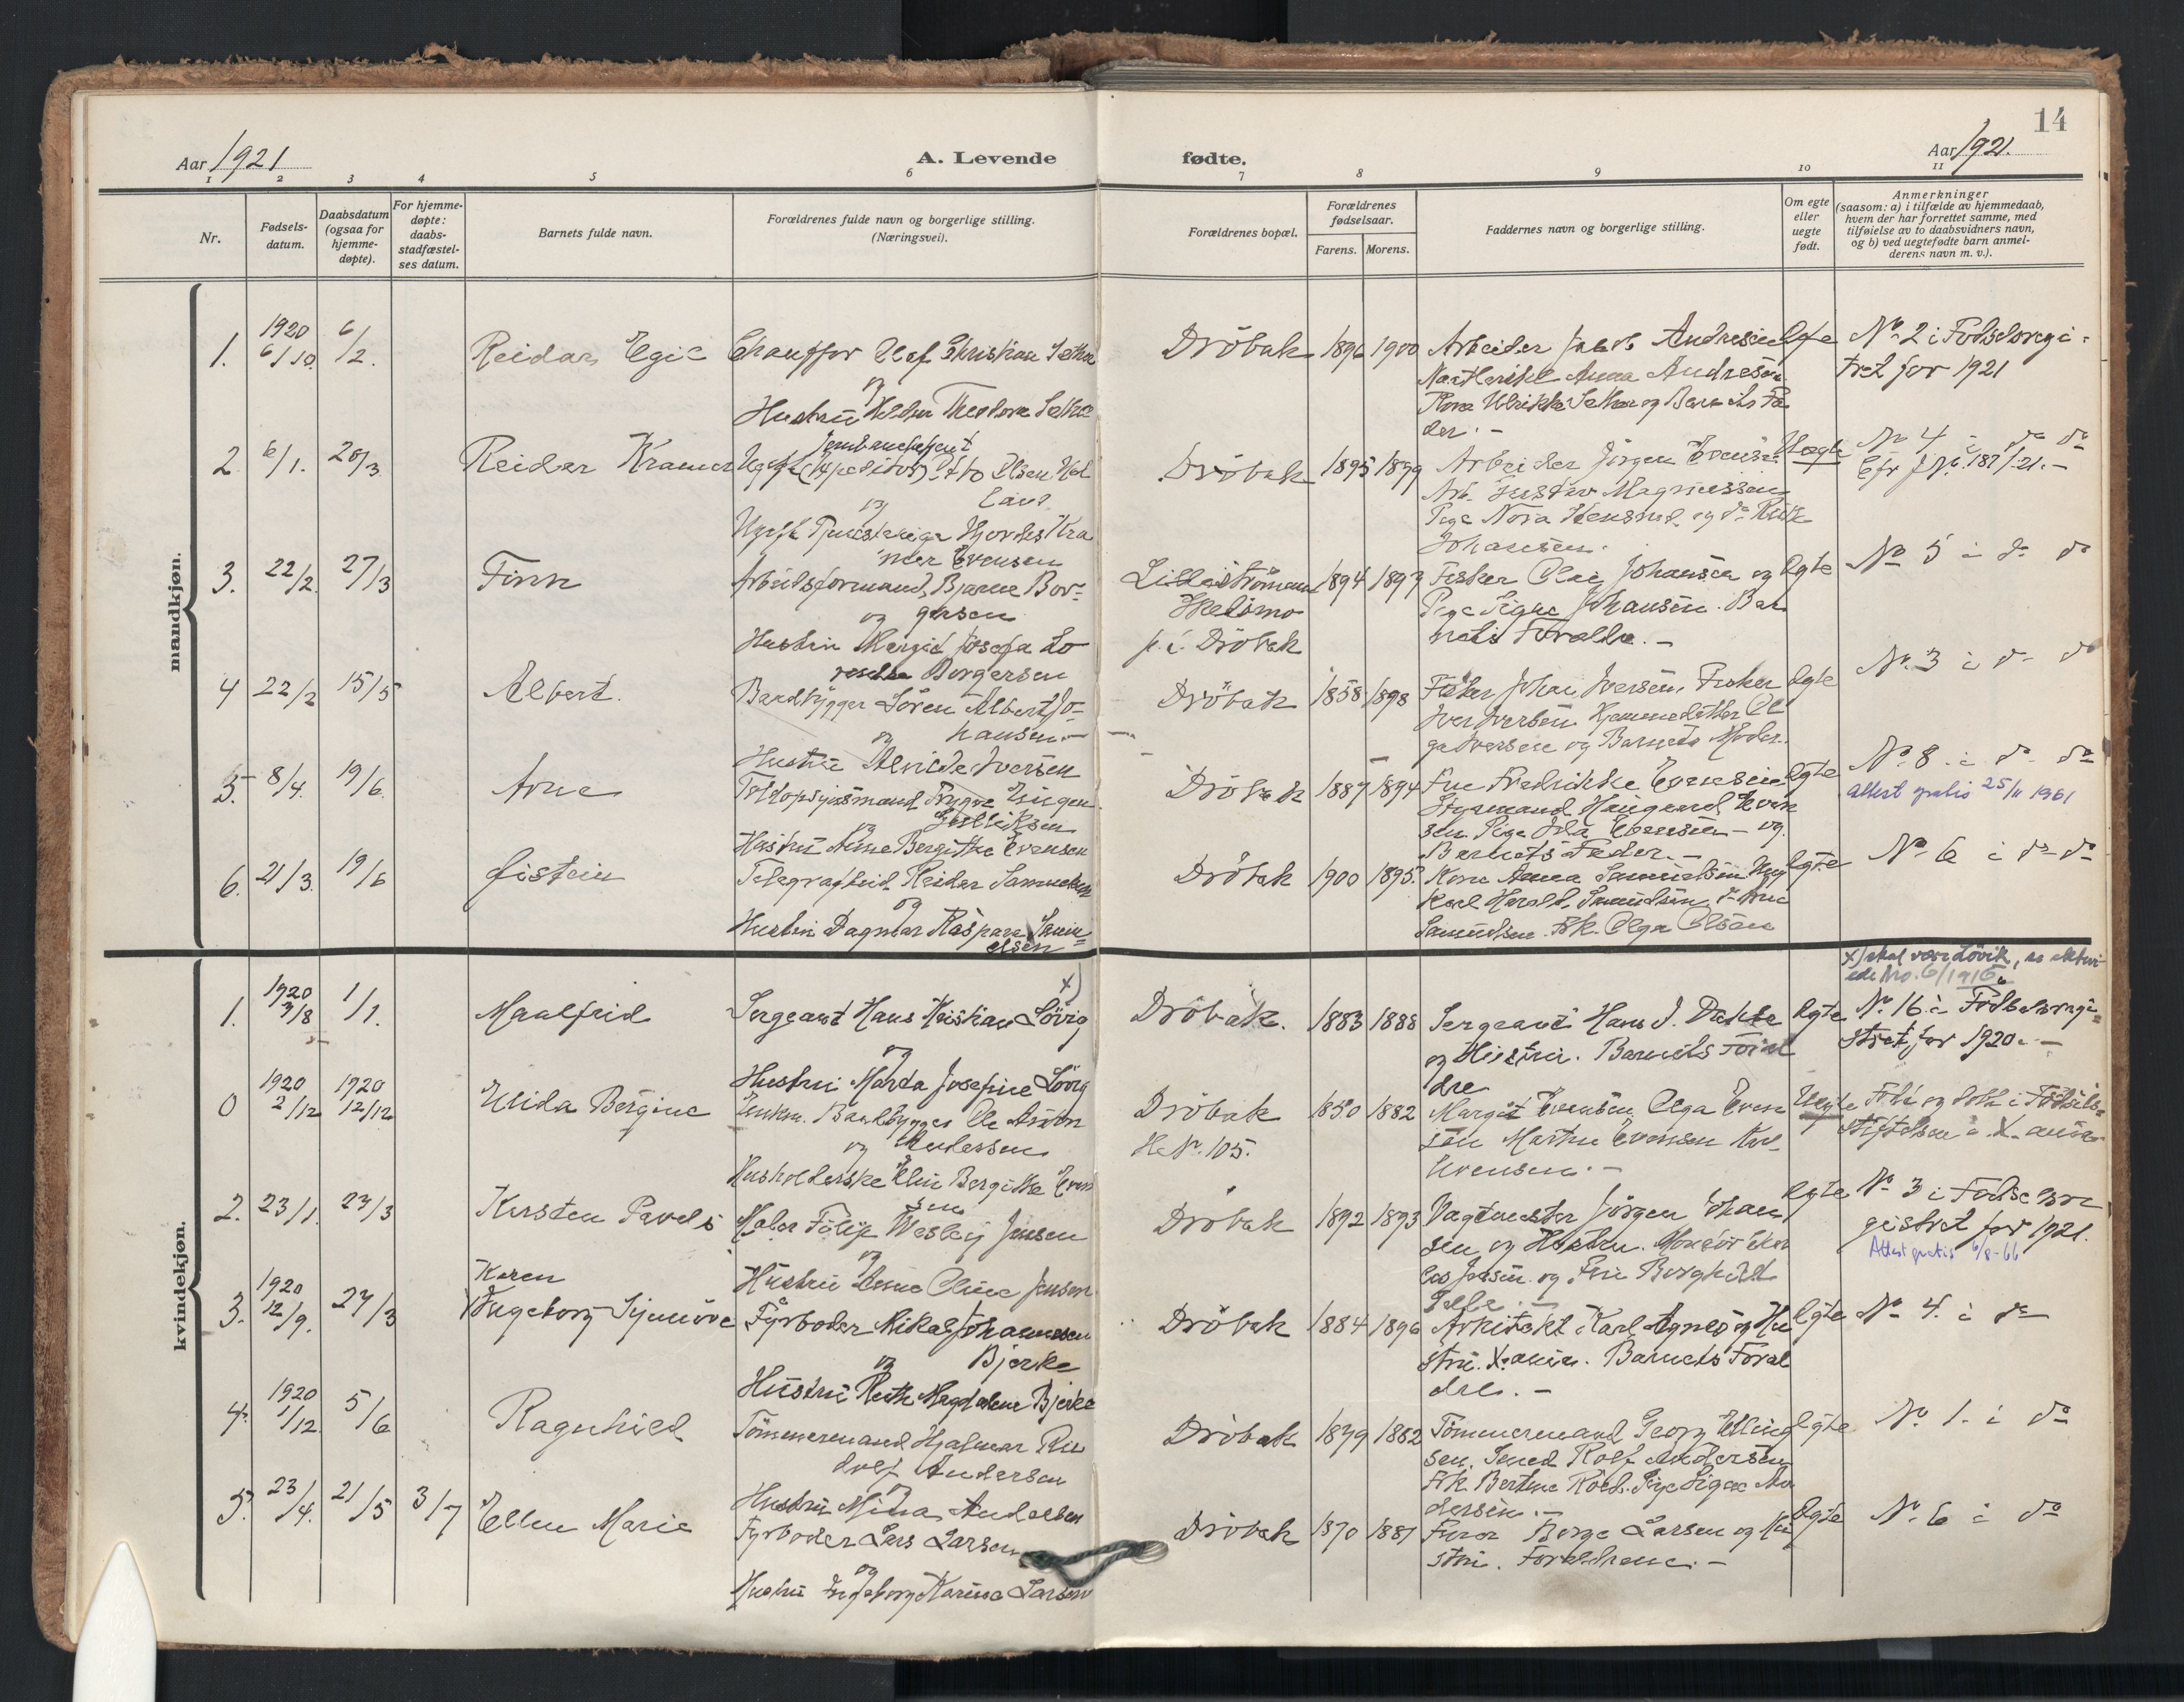 14
Aar 1921
A. Levende
fødte.
Aar 1921.
1 2 3 4 5 6 7 8 9 10 11
Nr.
Fødsels-
datum.
Daabsdatum
(ogsaa for
hjemme-
døpte).
For hjemme-
døpte:
daabs-
stadfæstel-
ses datum.
Barnets fulde navn.
Forældrenes fulde navn og borgerlige stilling.
(Næringsvei).
Forældrenes bopæl.
Forældrenes
fødselsaar.
Farens. Morens.
Faddernes navn og borgerlige stilling.
Om egte
eller
uegte
født.
Anmerkninger
(saasom: a) i tilfælde av hjemmedaab,
hvem der har forrettet samme, med
tilføielse av to daabsvidners navn,
og b) ved uegtefødte barn anmel-
derens navn m. v.).
mandkjøn.
1. 1920 6/10. 6/2. Reidar Egil
Olaf Kristian Sæthre
og
Hustru Theodora Sæthre
Dröbak 1896 1900
Arbeider Jakob Andresen
Anna Andresen
Ulrikke Sæthre og Barnets Fa
der. -
Egte
No 2 i Födselsregi-
tret for 1921
2 6/1. 28/3. Reidar Kramer
Otto Olsen
og
Hjördis Kra
mer Evensen
Dröbak 1895 1899
Arbeider Jörgen Evensen
Arb. Gustav Magnussen
Pige Nora
Johansen.
Uegte
No 4 i do do
Cfr J.No. 187/21.-
3. 22/2. 27/3 Finn
Arbeidsformand Bjarne Bor-
og gersen
Hustru Margit Josefa Lo
Borgersen
Lilleströmmen
p.t. Dröbak
1894 1897
Fisker Olai Johansen og
Pige Signe Johansen. Bar
nets Forældre. -
Egte
No 5 i do do
4 22/2 15/5 Albert.
Baadbygger Sören Albert Jo-
og hansen. -
Hustru Alvilde Iversen
Dröbak 1858 1898
Fisker Johan Iversen. Fisker
Iver Iversen. Hjemmedatter Ol
ga Iversen og Barnets Moder.
Egte
No. 3 i do do
5. 8/4. 19/6. Arne
Toldopsynsmand Trygve
og
Hustru Anne Bergitte Evensen
Dröbak 1887 1894
Fru Fredrikke Evensen
Styrmand Haugaard Even
sen. Pige Evensen - og
Barnets Fader. -
Egte
No. 8. i do do
Attest gratis 25/11 1961
6. 21/3. 19/6 Øistein
Reidar Samuelsen
og
Hustru Dagmar Kaspara Samu=
elsen
Dröbak 1900 1895.
Kone Anna Samuelsen
Karl Harald Samuelsen
Samuelsen. Frk. Olga Olsen
Egte
No. 6 i do do
kvindekjøn.
x) skal være Lövik, se
No. 6/1916.
1. 1920 3/8 1/1. Maalfrid
Sergeant Hans Kristian Lövig x)
og
Hustru Marta Josefine Lövig
Dröbak. 1883 1888
Sergeant Hans J. Dahle
og Hustru. Barnets Foræl
dre
Egte
No. 16 i Födselsregi=
stret for 1920. -
0 1920 2/12 1920 12/12 Elida Bergine
Enkem. Baadbygger Ole Anton
og Andersen
Husholderske Elin Bergitte Even
sen
Dröbak
H.No. 105.
1850 1882
Margit Evensen, Olga Even
sen Martin Evensen Karl
Evensen. -
Uegte
Födt og döbt i Födsels=
stiftelsen i X.ania
2. 23/1. 27/3 Kirsten Pavels
Maler Filip Wesley Jensen
og
Hustru Anna Oline Jensen
Dröbak 1892 1893
Vagtmester Jörgen Johan
sen og Hustru.
Jensen. og Fru Borghild
Egte
No. 3 i Födselsre
gistret for 1921.
Attest gratis 6/8-66
3. 1920 12/9. 27/3
Karen
Ingeborg Synnöve
Fyrböder Mikal Johannesen
og Bjerke
Hustru Ruth Magdalene Bjerke
Dröbak 1884 1896
Arkitekt Karl Agnes og Hu
stru. X.ania. Barnets Foræl
dre. -
Egte
No 4. i do
4. 1920 1/12 5/6 Ragnhild
Tömmermand Hjalmar Ru
dolf Andersen
og
Hustru Mina Andersen
Dröbak 1879 1882
Tömmermand Georg Elling
sen. Rolf Andersen
Frk. Bertine Roed. Pige Signe An
dersen. -
Egte
No. 1. i do
5. 23/4. 21/5 3/7 Ellen Marie
Fyrböder Lars Larsen
og
Hustru Ingeborg Karine Larsen
Dröbak 1870 1881
Börge Larsen og Hu
stru. Forældrene. -
Egte
No. 6 i do